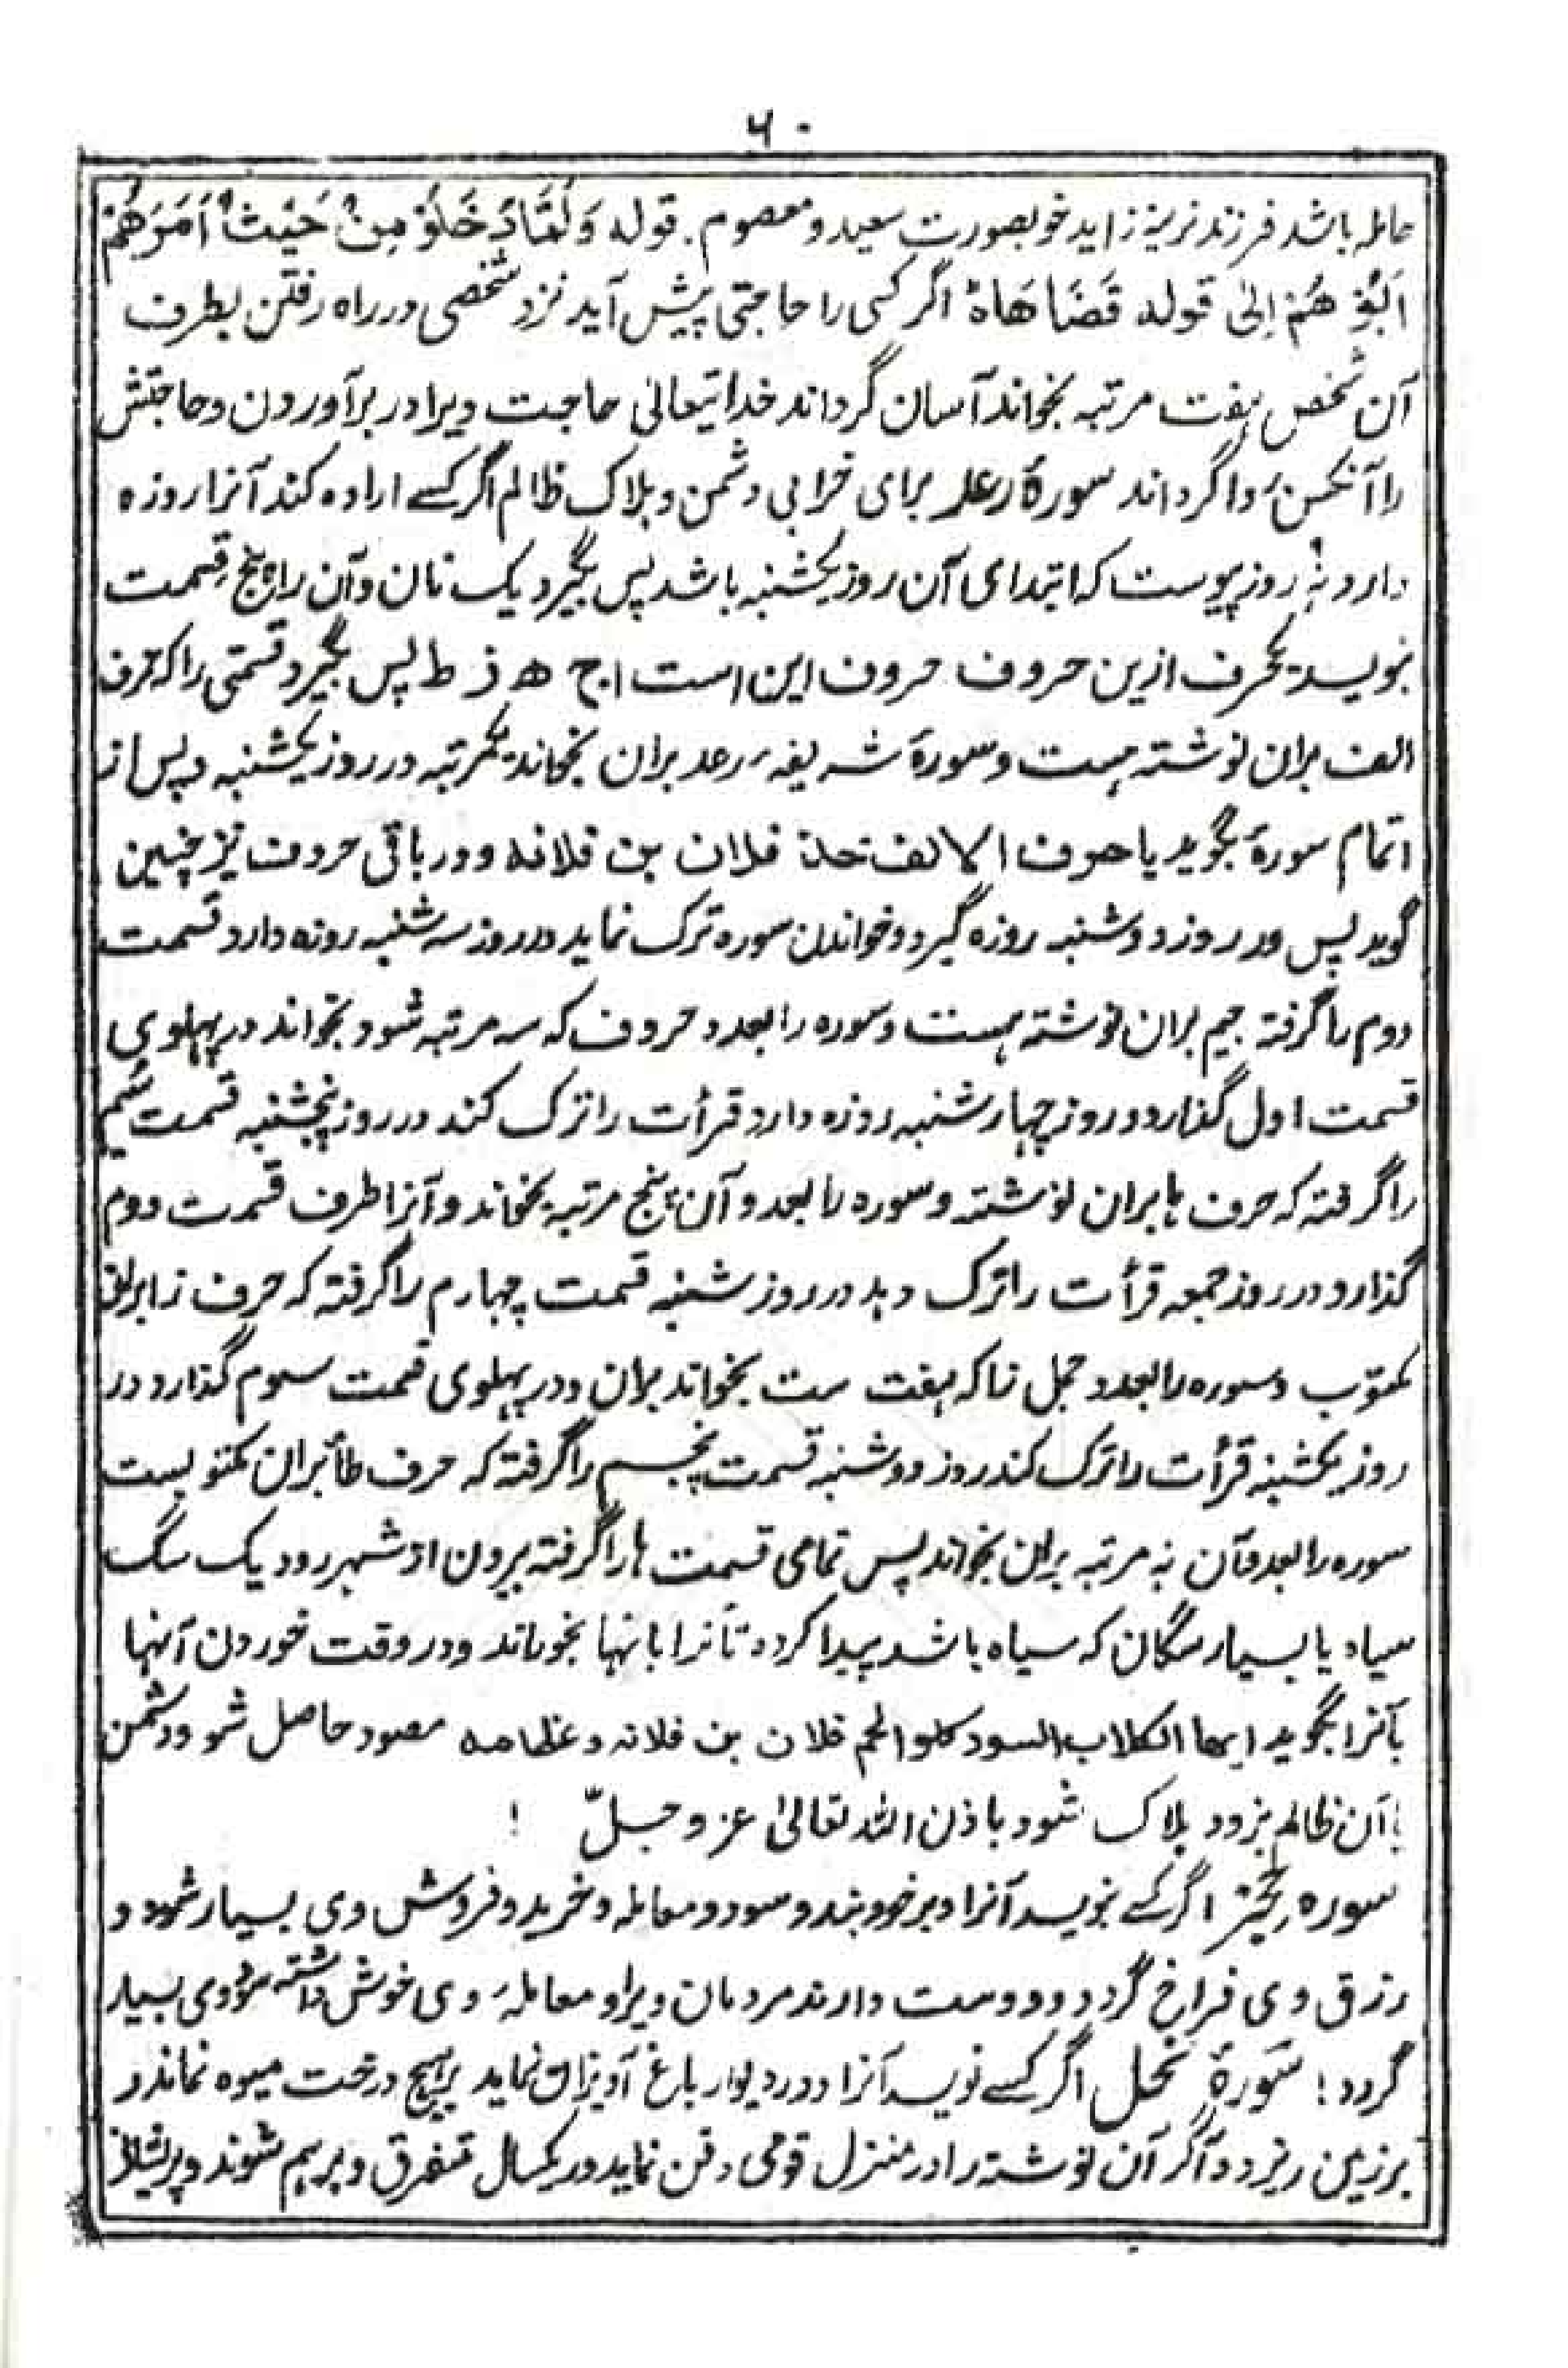 ۶۰
حامله باشد فرزند نرینه زاید خوبصورت سعید و معصوم. قوله وَلَمَّا دَخَلُوْ مِنْ حَیْثُ اَمَرَهُمْ
اَبُوْ هُمْ اِلیٰ قوله قَضَاهَاهٗ اگر کسی را حاجتی پیش آید نزد شخصی در راه رفتن بطرف
آن شخص هفت مرتبه بخواند آسان گرداند خدایتعالی حاجت ویرا در برآوردن و حاجتش
را آنکس روا گرداند سورۀ رعد برای خرابی دشمن و ہلاک ظالم اگر کسے اراده کند آنرا روزه
دارد نُہ روز پیوست که ابتدای آن روز یکشنبه باشد پس بگیرد یک نان و آن را پنج قسمت
نویسد یکحرف ازین حروف حروف این است ا ج ھ ز ط پس بگیرد قسمتی را که حرف
الف بران نوشته ہست و سورۀ شریفہ رعد بران بخواند یکمرتبه در روز یکشنبه و پس از
اتمام سورۀ بگوید یا حرف الالف خذ فلان بن فلانه و در باقی حروف نیز چنین
گوید پس در روز دوشنبه روزه گیرد و خواندن سوره ترک نماید در روز سه شنبه روزه دارد قسمت
دوم را گرفته جیم بران نوشته ہست و سوره را بعدد حروف که سه مرتبه شود بخواند در پهلوی
قسمت اول گذارد و روز چهارشنبه روزه دارد قرأت را ترک کند در روز پنجشنبه قسمت سیم
را گرفته که حرف ہا بران نوشته و سوره را بعدد آن پنج مرتبه بخواند و آنرا طرف قسمت دوم
گذارد در روز جمعه قرأت را ترک دہد در روز شنبه قسمت چهارم را گرفته که حرف زا بران
مکتوب و سوره را بعدد جمل زا که ہفت ست بخواند بران و در پهلوی قسمت سوم گذارد در
روز یکشنبه قرأت را ترک کند روز دوشنبه قسمت پنجم را گرفته که حرف طا بران مکتوبست
سوره را بعدد آن نہ مرتبه بران بخواند پس تمامی قسمت ہا را گرفته بیرون از شہر رود یک سگ
سیاه یا بسیار سگان که سیاه باشد پیدا کرده تا آنرا بانہا بخوراند و در وقت خوردن آنہا
بآنرا بگوید ایها الکلاب السود کلوا لحم فلان بن فلانه و عظامه مقصود حاصل شود دشمن
یا آن ظالم بزود ہلاک شود باذن اللہ تعالیٰ عز و جلّ !
سوره حجر اگر کسے نویسد آنرا و بر خود بندد سود و معامله و خرید و فروش وی بسیار شود و
رزق وی فراخ گردد و دوست دارند مردمان ویرا و معاملہ وی خوش داشته سود وی بسیار
گردد ! سَورۀ نحل اگر کسے نویسد آنرا و در دیوار باغ آویزان نماید بر ہیچ درخت میوه نماند و
بر زمین ریزد و اگر آن نوشته را در منزل قومی دفن نماید در یکسال متفرق و برہم شوند و پریشان